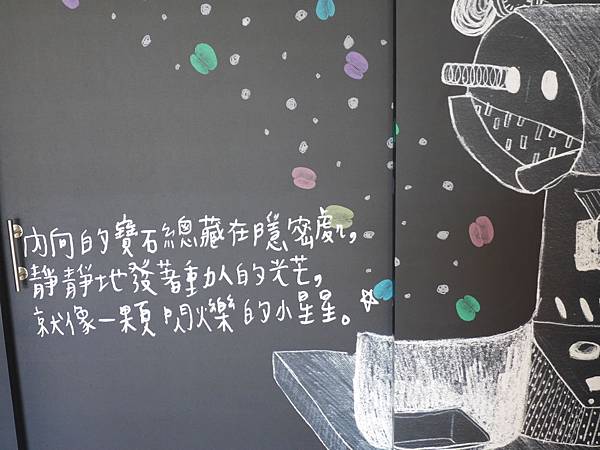 內向的寶石總藏在隱密處，
靜靜地發著動人的光芒，
就像一顆閃爍的小星星。